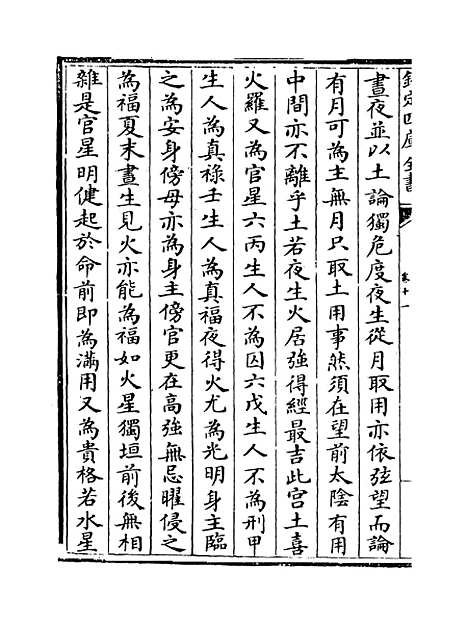 欽定四庫全書
卷十一
晝夜並以土論獨危度夜生從月取用亦依弦望而論
有月可為主無月只取土用事然須在望前太陰有用
中間亦不離乎土若夜生火居強得經最吉此宮土喜
火羅又為官星六丙生人不為囚六戊生人不為刑甲
生人為真祿壬生人為真福夜得火尤為光明身主臨
之為安身傍母亦為身主傍官更在高強無忌曜侵之
為福夏末晝生見火亦能為福如火星獨垣前後無相
雜是官星明健起於命前即為滿用又為貴格若水星